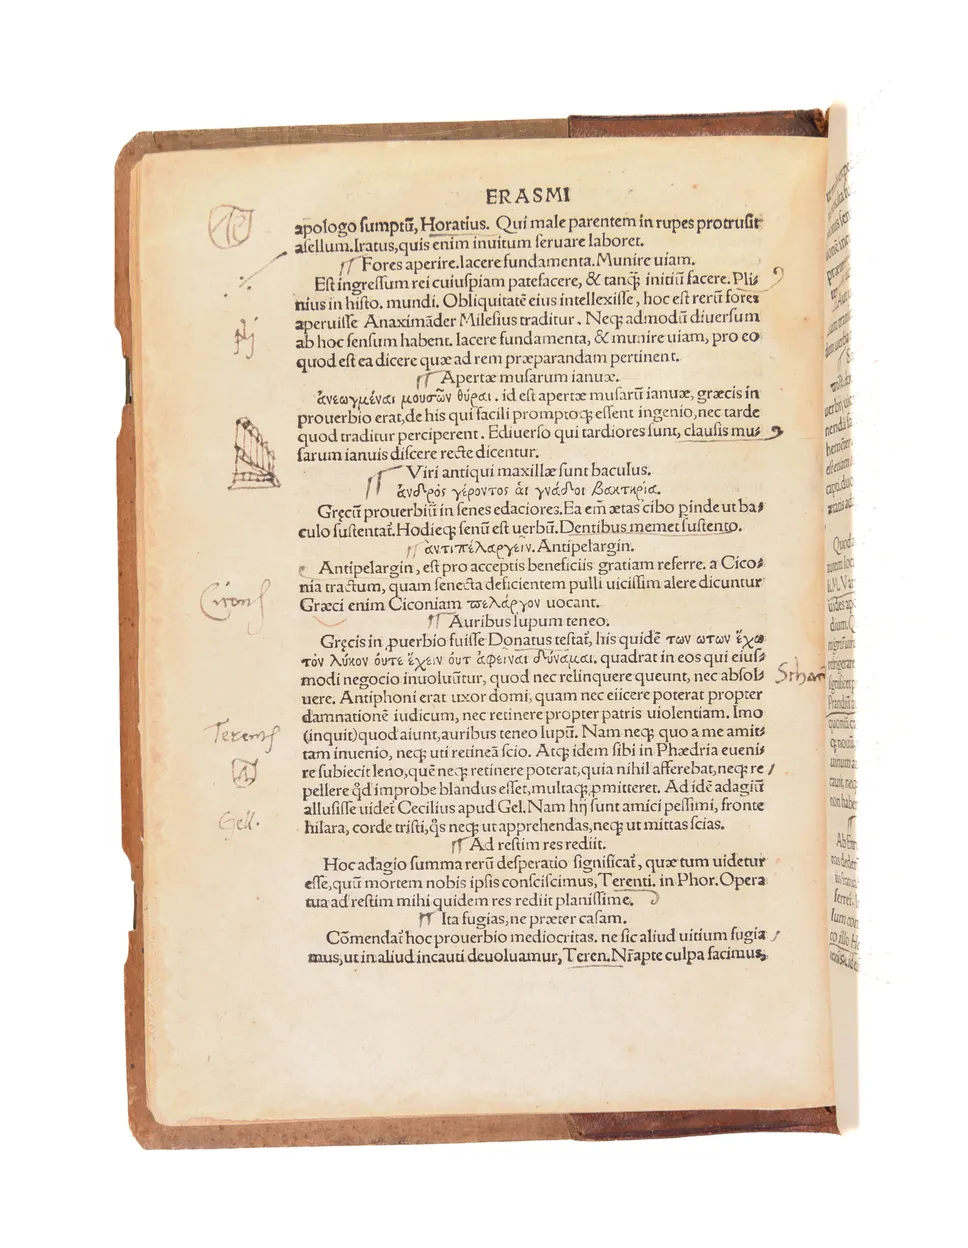 ERASMI
apologo sumptū, Horatius. Qui male parentem in rupes protrusit
asellum. Iratus, quis enim inuitum seruare laboret.
Fores aperire. Iacere fundamenta. Munire uiam.
Est ingressum rei cuiuspiam patefacere, & tanq̃ initiū facere. Pli⸗
nius in histo. mundi. Obliquitatē eius intellexisse, hoc est rerū fores
aperuisse Anaximāder Milesius traditur. Neq; admodū diuersum
ab hoc sensum habent. Iacere fundamenta, & munire uiam, pro eo
quod est ea dicere quæ ad rem præparandam pertinent.
Apertæ musarum ianuæ.
ἀνεωγμέναι μουσῶν θύραι. id est apertæ musarū ianuæ, græcis in
prouerbio erat, de his qui facili promptoq; essent ingenio, nec tarde
quod traditur perciperent. Ediuerso qui tardiores sunt, clausis mu⸗
sarum ianuis discere recte dicentur.
Viri antiqui maxillæ sunt baculus.
ἀνδρὸς γέροντος ἁι γνάθοι βακτηρία.
Gręcū prouerbiū in senes edaciores. Ea em̃ ætas cibo ꝓinde ut ba⸗
culo sustentat̃. Hodieq; senū est uerbū. Dentibus memet sustento.
ἀντιπελαργειν. Antipelargin.
Antipelargin, est pro acceptis beneficiis gratiam referre. a Cico⸗
nia tractum, quam senecta deficientem pulli uicissim alere dicuntur
Græci enim Ciconiam πελάργον uocant.
Auribus lupum teneo.
Gręcis in ꝓuerbio fuisse Donatus testat̃, his quidē των ωτων ἔχω
τὸν λύκον ὀυτε ἔχειν ὀυτ ἀφειναι δύναμαι. quadrat in eos qui eius⸗
modi negocio inuoluūtur, quod nec relinquere queunt, nec absol⸗
uere. Antiphoni erat uxor domi, quam nec eiicere poterat propter
damnationē iudicum, nec retinere propter patris uiolentiam. Imo
(inquit) quod aiunt, auribus teneo lupū. Nam neq; quo a me amit⸗
tam inuenio, neq; uti retineā scio. Atq; idem sibi in Phædria eueni⸗
re subiecit leno, quē neq; retinere poterat, quia nihil afferebat, neq; re
pellere q̃d improbe blandus esset, multaq; ꝓmitteret. Ad idē adagiū
allusisse uidet̃ Cecilius apud Gel. Nam hij sunt amici pessimi, fronte
hilara, corde tristi, q̃s neq; ut apprehendas, neq; ut mittas scias.
Ad restim res rediit.
Hoc adagio summa rerū desperatio significat̃, quæ tum uidetur
esse, quū mortem nobis ipsis consciscimus, Terenti. in Phor. Opera
tua ad restim mihi quidem res rediit planissime.
Ita fugias, ne præter casam.
Cōmendat̃ hoc prouerbio mediocritas. ne sic aliud uitium fugia
mus, ut in aliud incauti deuoluamur, Teren. Nr̃apte culpa facimus,
Gell.